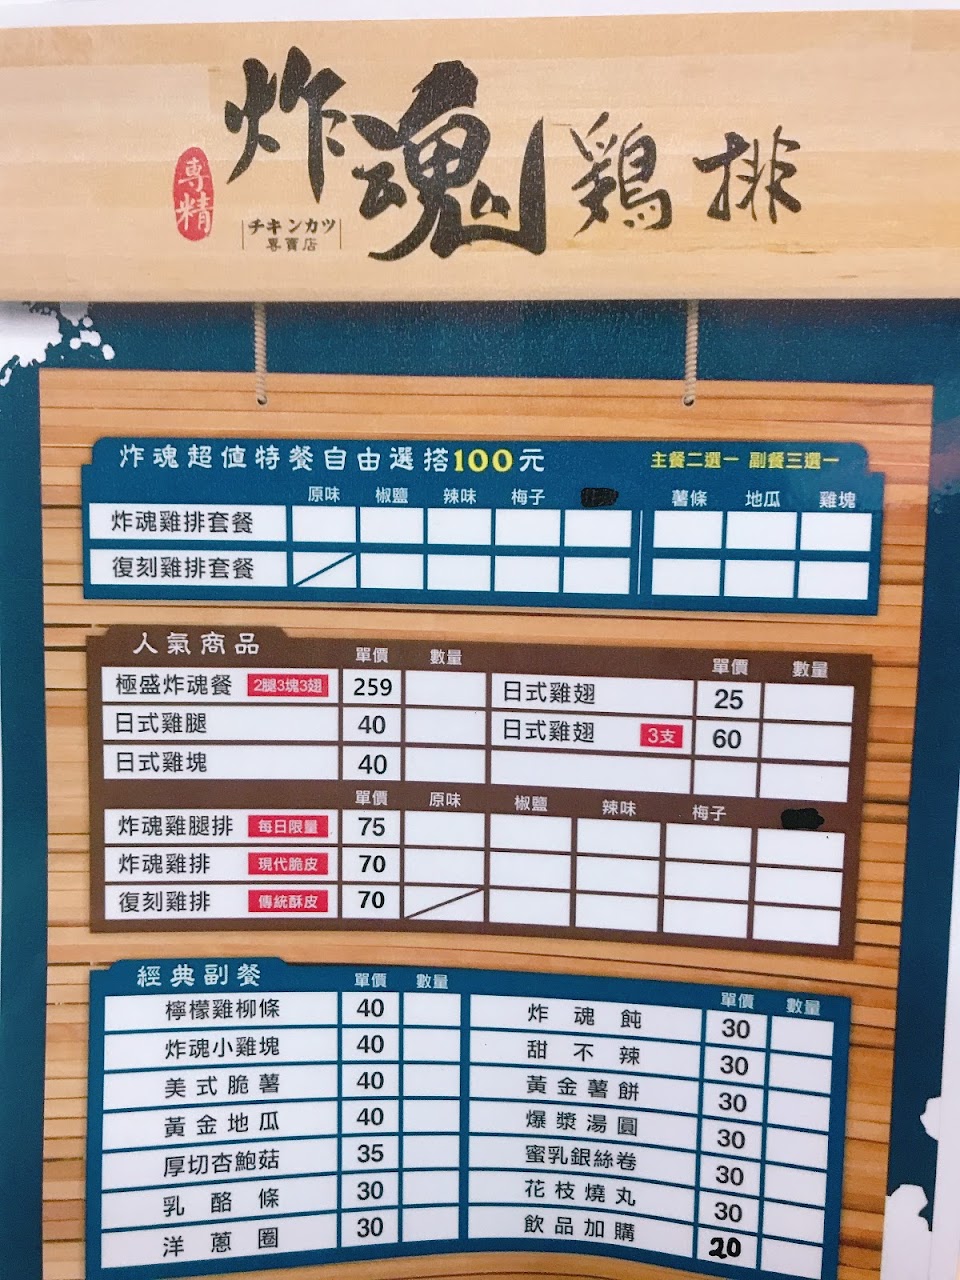 專精
炸魂鶏排
チキンカツ
專賣店
炸魂超值特餐自由選搭100元 主餐二選一 副餐三選一
原味 椒鹽 辣味 梅子 薯條 地瓜 雞塊
炸魂雞排套餐
復刻雞排套餐
人氣商品 單價 數量 單價 數量
極盛炸魂餐 2腿3塊3翅 259 日式雞翅 25
日式雞腿 40 日式雞翅 3支 60
日式雞塊 40
單價 原味 椒鹽 辣味 梅子
炸魂雞腿排 每日限量 75
炸魂雞排 現代脆皮 70
復刻雞排 傳統酥皮 70
經典副餐 單價 數量 單價 數量
檸檬雞柳條 40 炸魂飩 30
炸魂小雞塊 40 甜不辣 30
美式脆薯 40 黃金薯餅 30
黃金地瓜 40 爆漿湯圓 30
厚切杏鮑菇 35 蜜乳銀絲卷 30
乳酪條 30 花枝燒丸 30
洋蔥圈 30 飲品加購 20